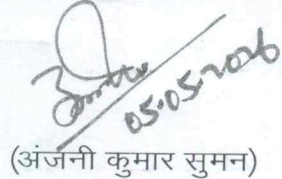 05.05.2026
(अंजनी कुमार सुमन)